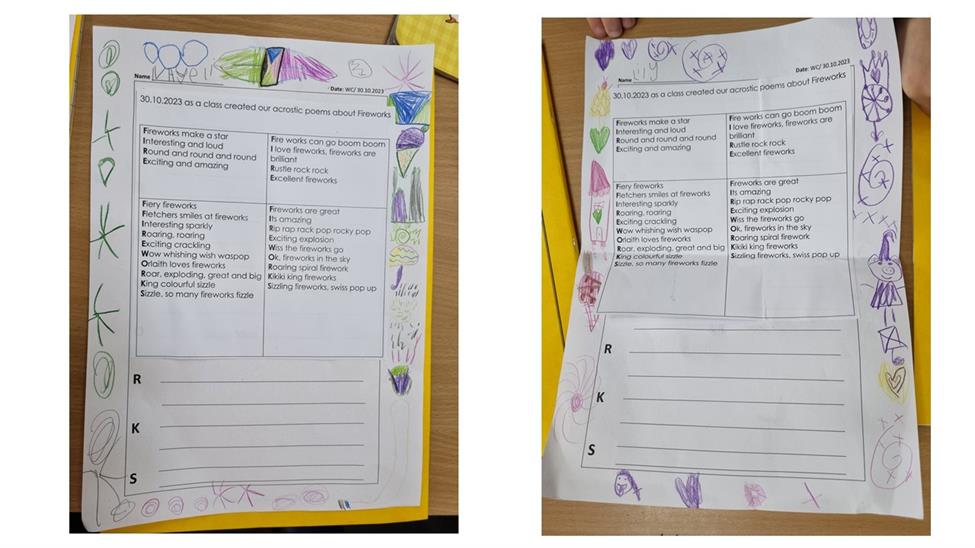 Name
Date: WC/ 30.10.2023
30.10.2023 as a class created our acrostic poems about Fireworks
Fireworks make a star
Interesting and loud
Round and round and round
Exciting and amazing
Fire works can go boom boom
I love fireworks, fireworks are
brilliant
Rustle rock rock
Excellent fireworks
Fiery fireworks
Fletchers smiles at fireworks
Interesting sparkly
Roaring, roaring
Exciting crackling
Wow whishing wish waspop
Orlaith loves fireworks
Roar, exploding, great and big
King colourful sizzle
Sizzle, so many fireworks fizzle
Fireworks are great
Its amazing
Rip rap rack pop rocky pop
Exciting explosion
Wiss the fireworks go
Ok, fireworks in the sky
Roaring spiral firework
Kikiki king fireworks
Sizzling fireworks, swiss pop up
R
K
S
Name
Date: WC/ 30.10.2023
30.10.2023 as a class created our acrostic poems about Fireworks
Fireworks make a star
Interesting and loud
Round and round and round
Exciting and amazing
Fire works can go boom boom
I love fireworks, fireworks are
brilliant
Rustle rock rock
Excellent fireworks
Fiery fireworks
Fletchers smiles at fireworks
Interesting sparkly
Roaring, roaring
Exciting crackling
Wow whishing wish waspop
Orlaith loves fireworks
Roar, exploding, great and big
King colourful sizzle
Sizzle, so many fireworks fizzle
Fireworks are great
Its amazing
Rip rap rack pop rocky pop
Exciting explosion
Wiss the fireworks go
Ok, fireworks in the sky
Roaring spiral firework
Kikiki king fireworks
Sizzling fireworks, swiss pop up
R
K
S